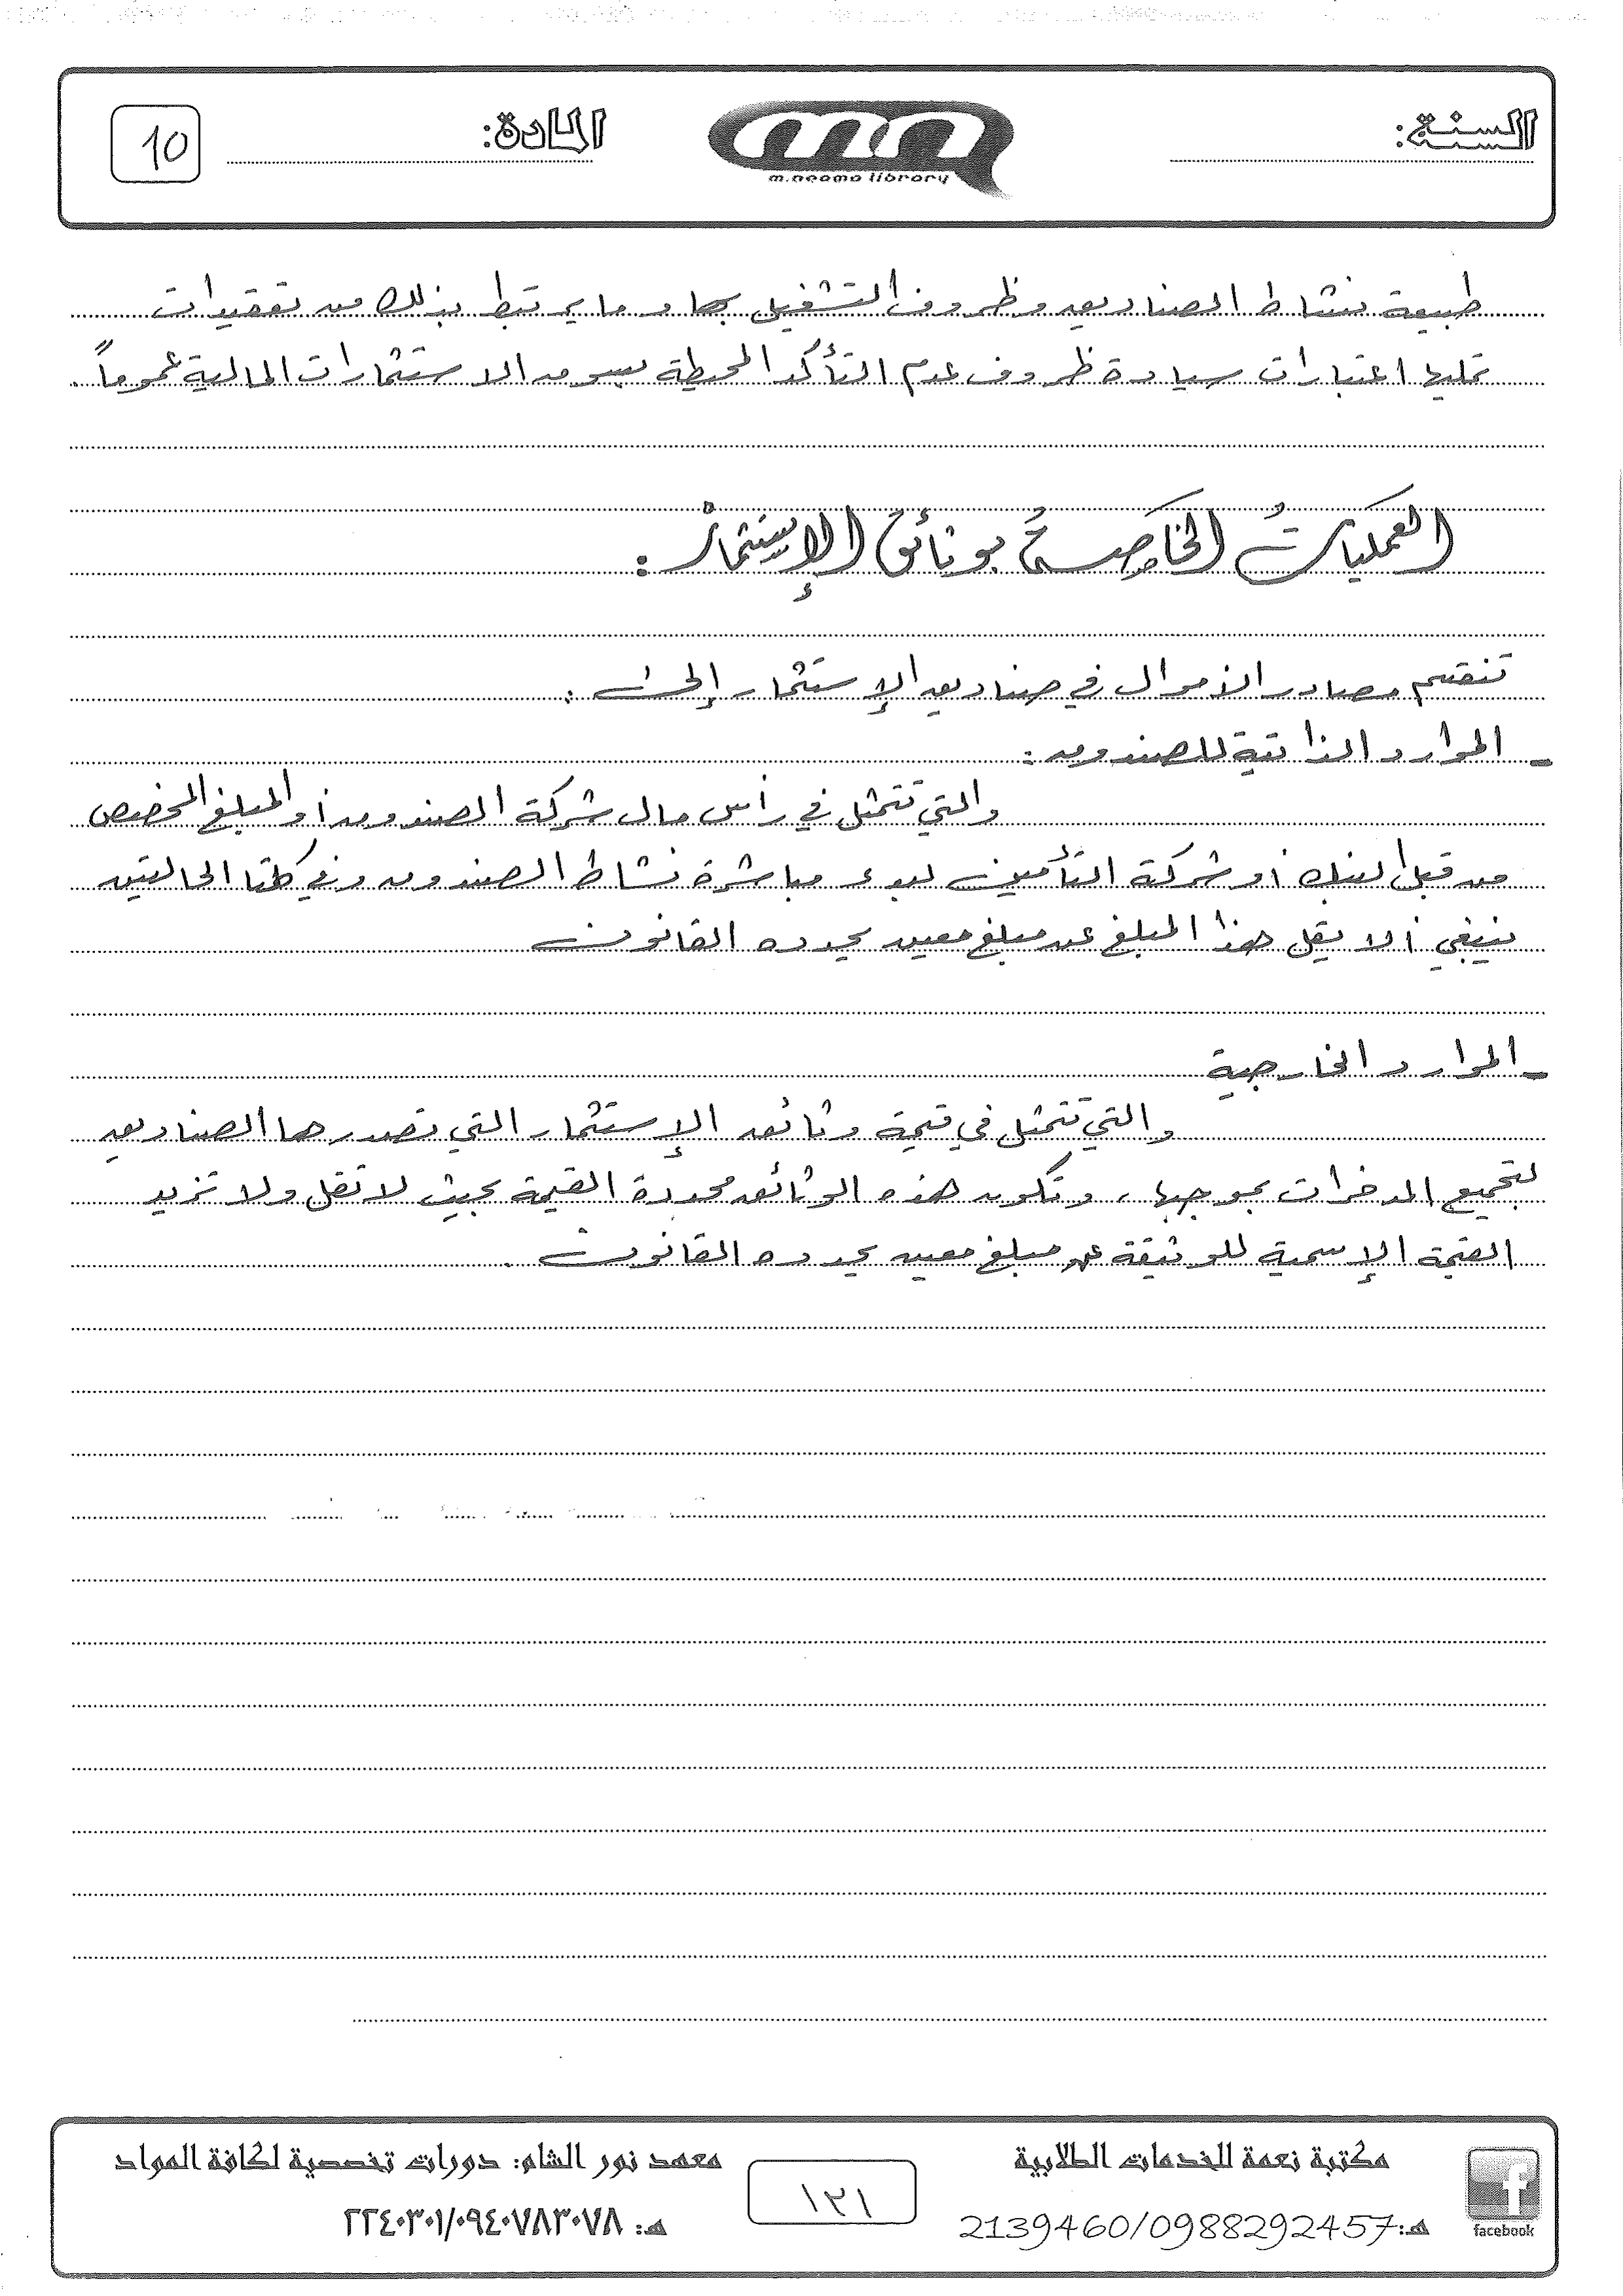 السنة:
m.neama library
المادة:
10
طبيعة نشاط الصناديق وظروف التشغيل بها وما يرتبط بذلك من تعقيدات
تمليها اعتبارات سيادة ظروف عدم التأكد المحيطة بسوق الاستثمارات المالية عموماً.
العمليات الخاصة بوثائق الإستثمار :
تنقسم مصادر الأموال في صناديق الإستثمار إلى :
- الموارد الذاتية للصندوق :
والتي تتمثل في رأس مال شركة الصندوق أو المبلغ المخصص
من قبل البنك أو شركة التأمين لبدء مباشرة نشاط الصندوق وفي كلتا الحالتين
ينبغي ألا يقل هذا المبلغ عن مبلغ معين يحدده القانون
- الموارد الخارجية
والتي تتمثل في قيمة وثائق الإستثمار التي تصدرها الصناديق
لتجميع المدخرات بموجبها ، وتكون هذه الوثائق محددة القيمة بحيث لا تقل ولا تزيد
القيمة الإسمية للوثيقة عن مبلغ معين يحدده القانون .
مكتبة نعمة للخدمات الطلابية
هـ:2139460/0988292457
facebook
١٢١
معهد نور الشام: دورات تخصصية لكافة المواد
هـ: ٢٢٤٠٣٠١/٠٩٤٠٧٨٣٠٧٨